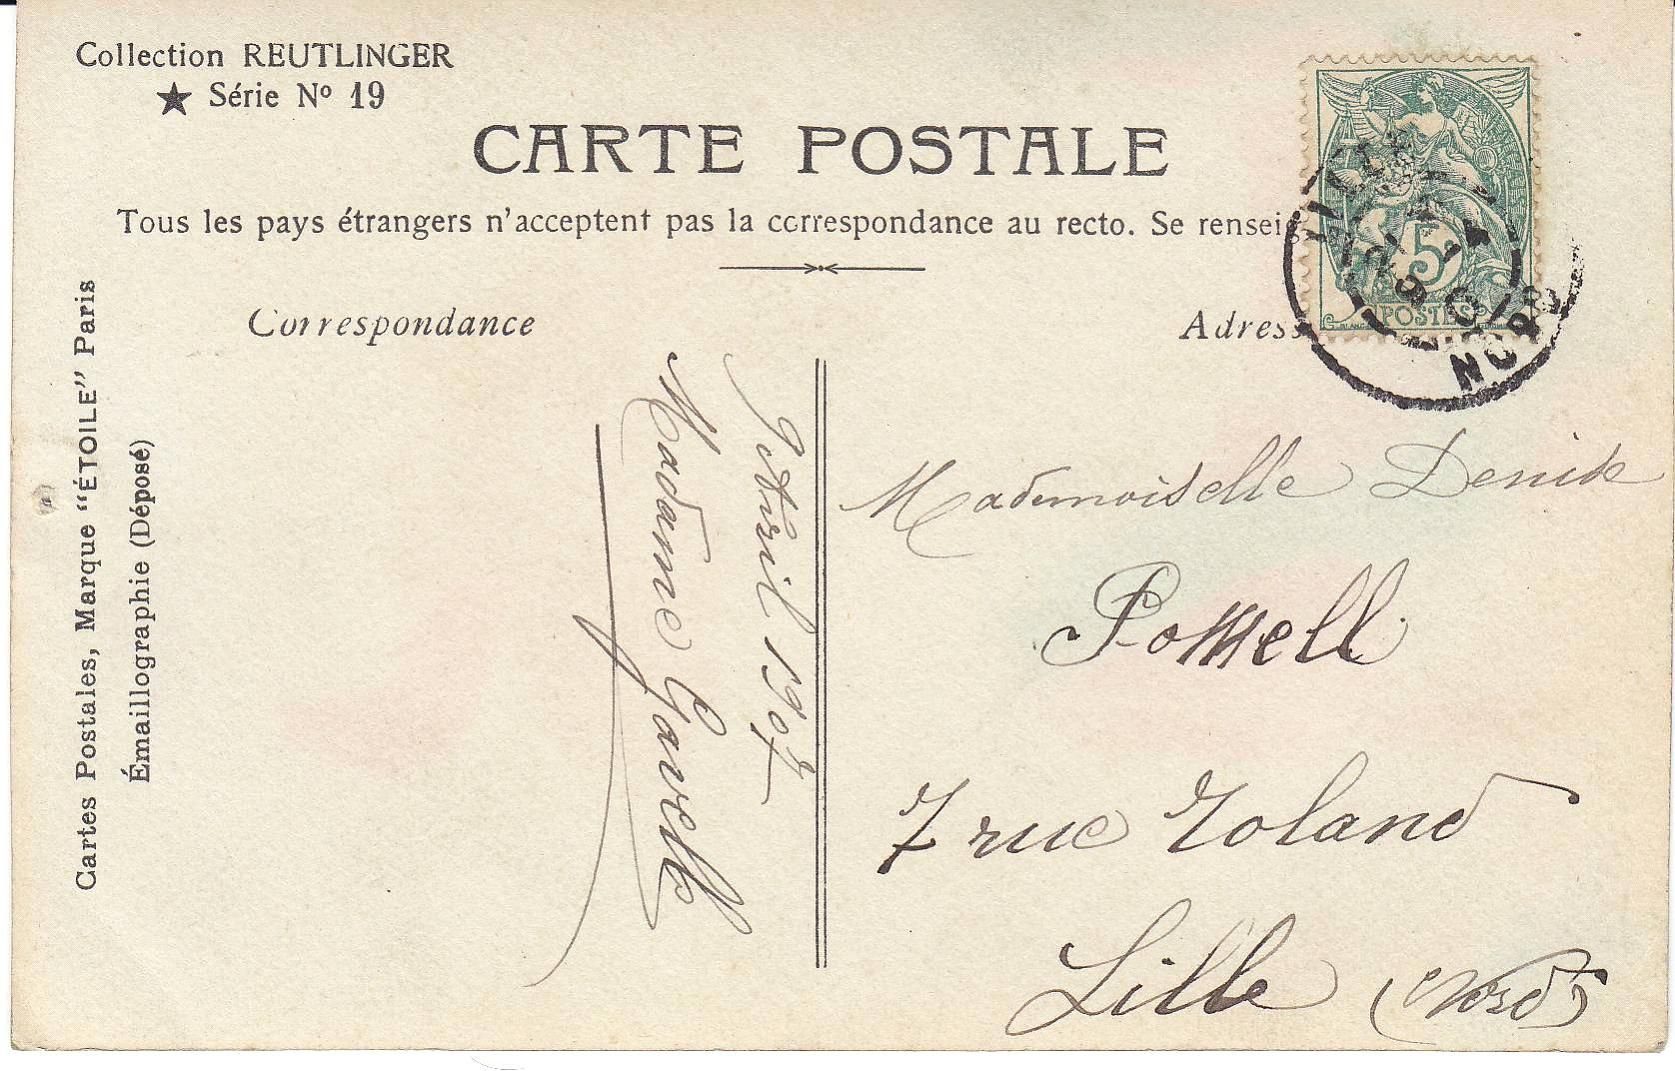 Collection REUTLINGER
★ Série Nº 19
CARTE POSTALE
Tous les pays étrangers n'acceptent pas la correspondance au recto. Se renseig
Correspondance
Adress
Cartes Postales, Marque "ÉTOILE" Paris
Émaillographie (Déposé)
Avril 1907
Madame Gavelle
Mademoiselle Denise
7 rue Roland
Lille (Nord)
5
POSTES
LILLE
NORD